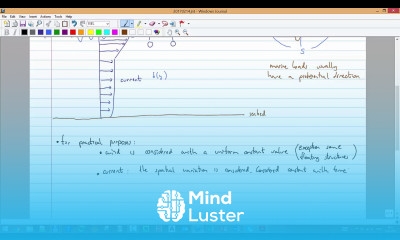 S
marine loads usually
current U(z)
have a preferential direction
seabed
• for practical purposes:
• wind is considered with a uniform constant value (exception some floating structures)
• current: the spatial variation is considered, considered constant with time
Mind
Luster